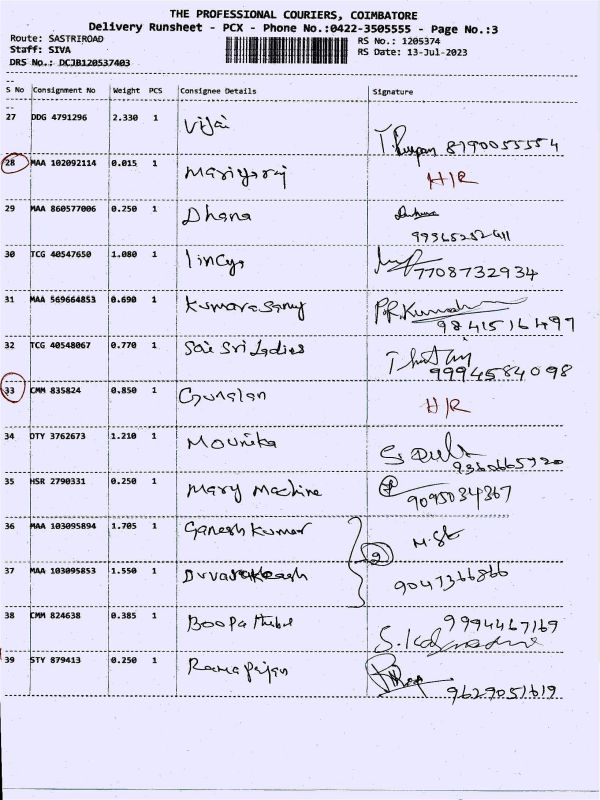 THE PROFESSIONAL COURIERS, COIMBATORE
Delivery Runsheet - PCX - Phone No.:0422-3505555 - Page No.:3
Route: SASTRIROAD RS No.: 1205374
Staff: SIVA RS Date: 13-Jul-2023
DRS No.: DCJB120537403
S No Consignment No Weight PCS Consignee Details Signature
27 DDG 4791296 2.330 1 Vijai 8190055554
28 MAA 102092114 0.015 1 Mariyaraj H/R
29 MAA 860577006 0.250 1 Dhana
30 TCG 40547650 1.080 1 lincya 7708732934
31 MAA 569664853 0.690 1 Kumarasamy P.R.Kumar 9841516497
32 TCG 40548067 0.770 1 Sai Sri Ladies 9994584098
33 CMM 835824 0.850 1 Gunalan H/R
34 DTY 3762673 1.210 1 Mounika 9360665920
35 HSR 2790331 0.250 1 Mary Machine 9095034367
36 MAA 103095894 1.705 1 Ganesh Kumar
37 MAA 103095853 1.550 1 9047366866
38 CMM 824638 0.385 1 9994467169
39 STY 879413 0.250 1 9629051619